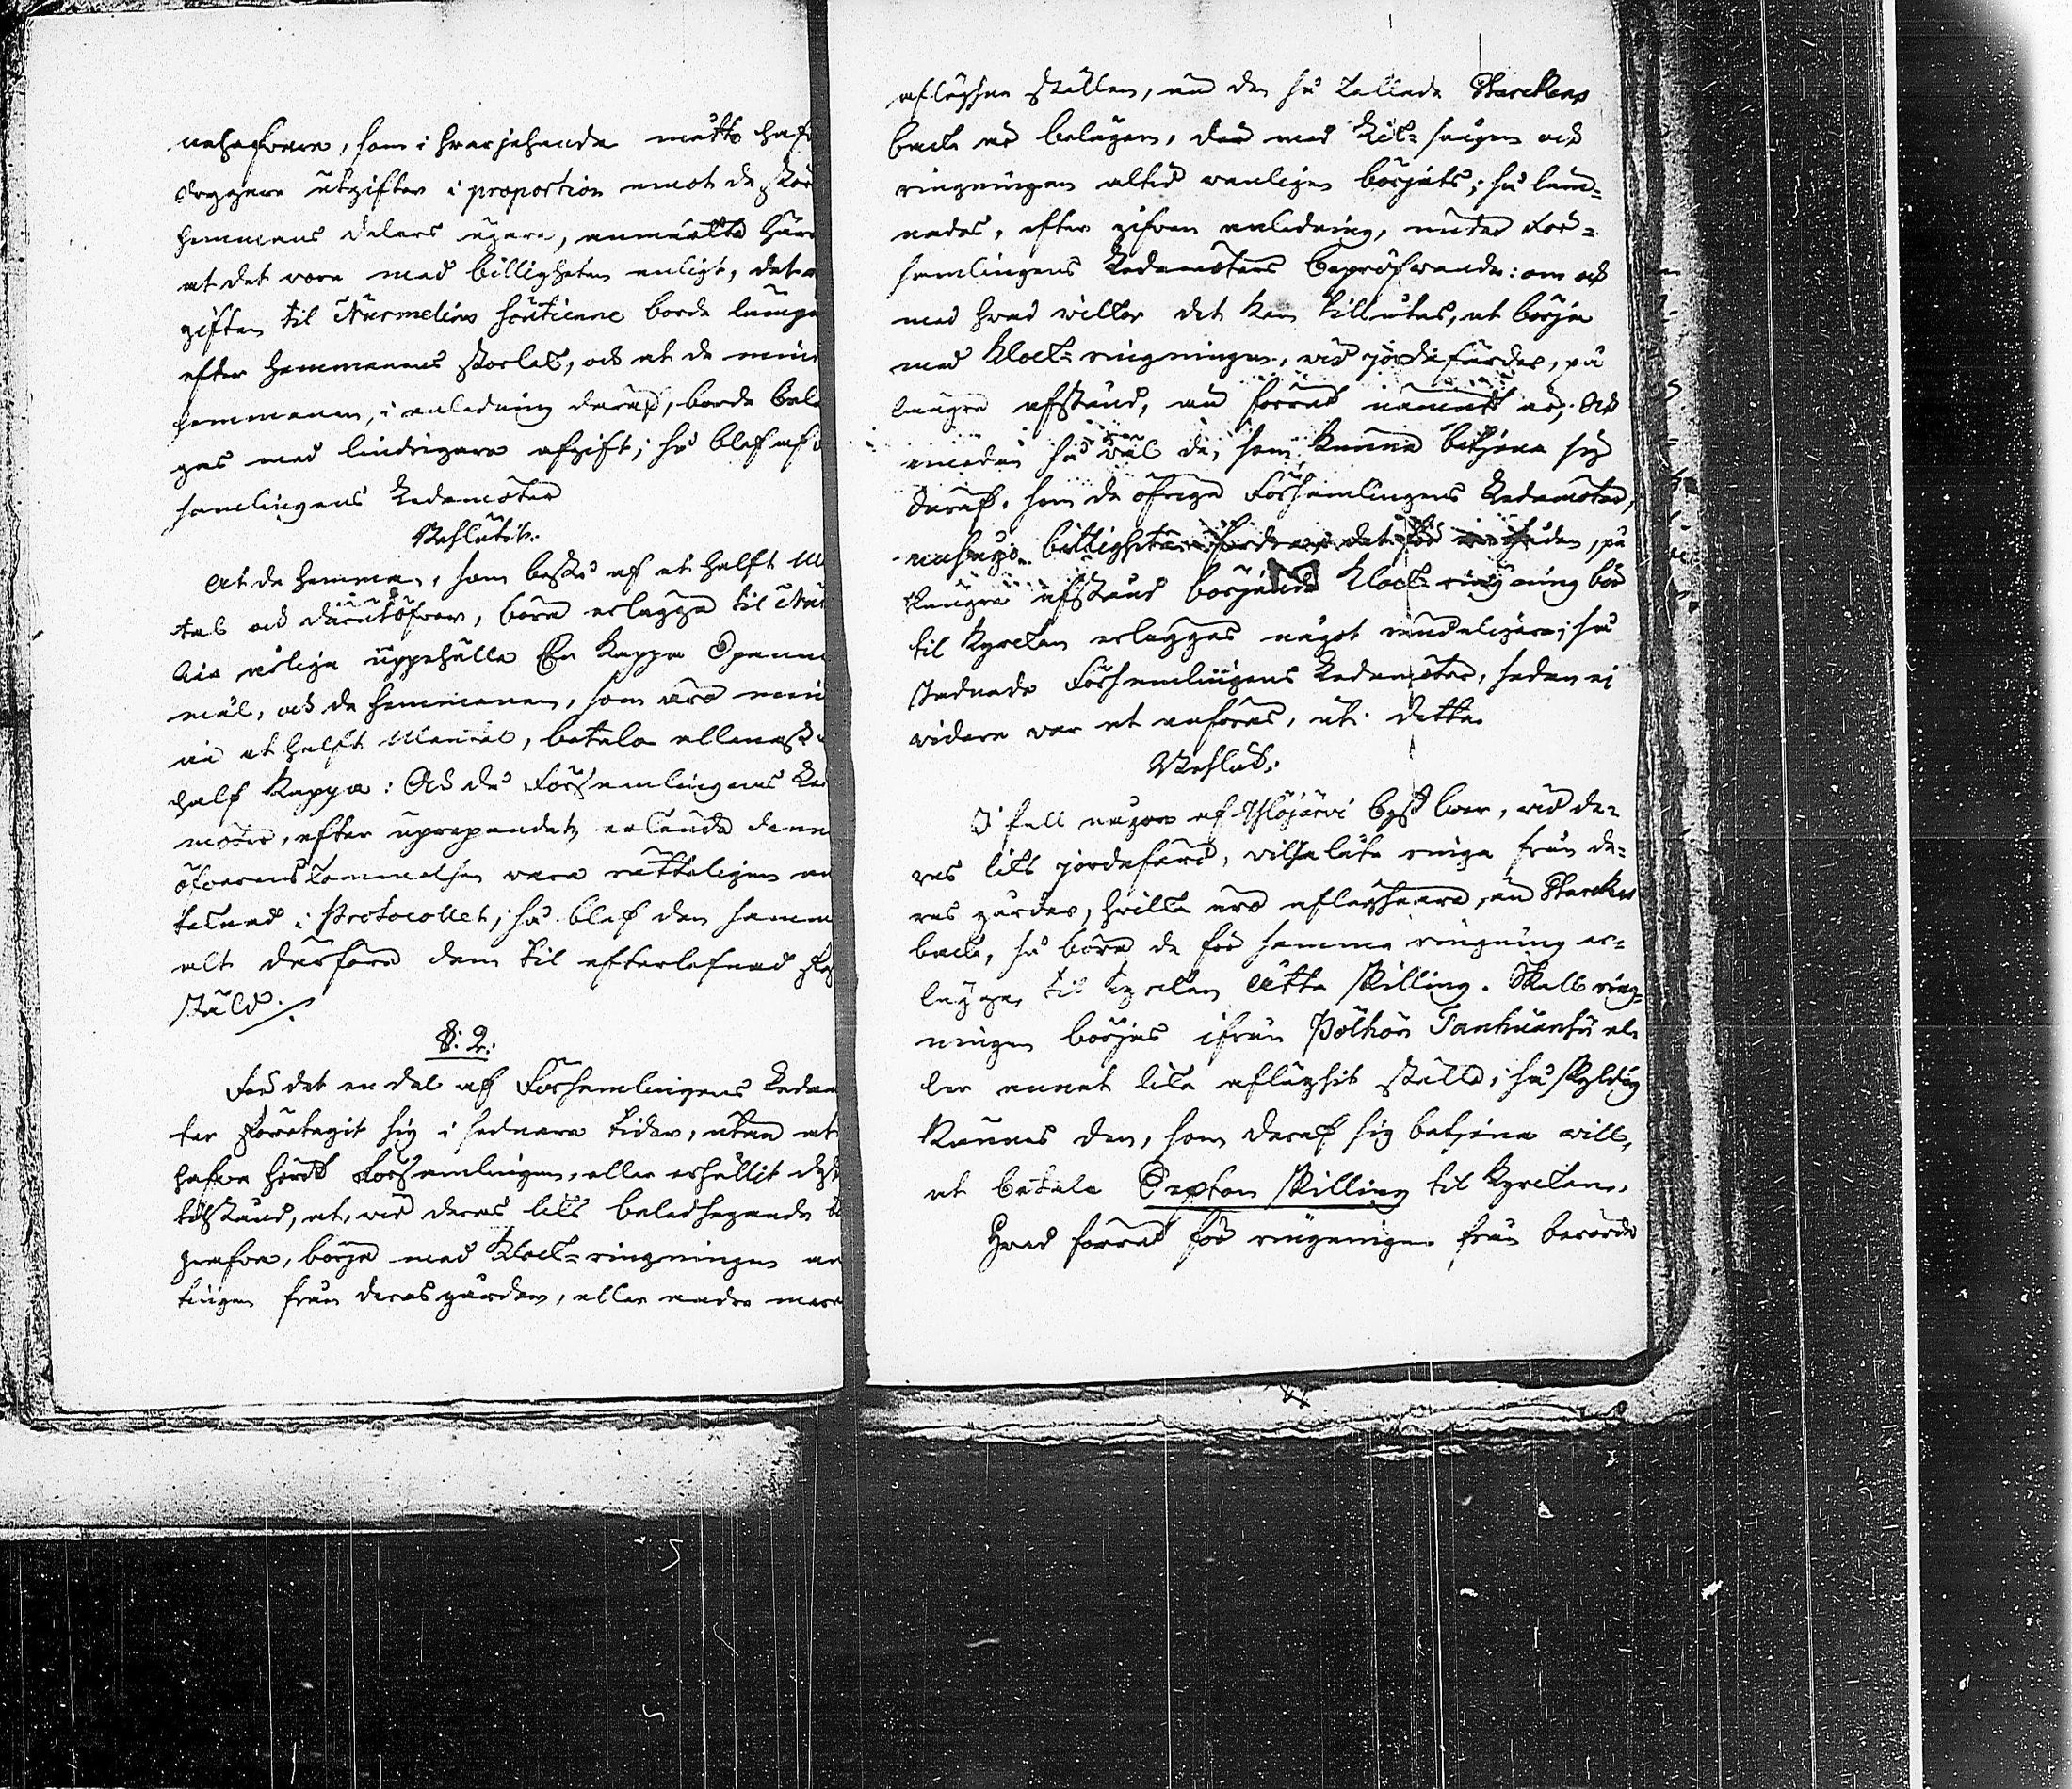 nehafware, som i hvarjehanda måtto haf
dryggare utgifter i proportion emot de stör
hemmans delars ägare, anmälte Här
at det vore med billigheten enligt, det a
giften til Nurmelins soutienne borde lämpa
efter hemmanens storlek, och at de min
hemmanen, i anledning deraf, borde belä
gas med lindrigare afgift; så blef af
samlingens Ledamöter
Beslutit:
At de hemman, som bestå af et halft M
tal och därutöfver, böra erlägga til Nur
lins årliga uppehälle En Kappa Spanne
mål, och de hemmanen, som äro min
än et halft Mantal, betala allenast
half Kappa: Och då Församlingens Led
möter, efter uprepandet, erkände denne
öfverenskommelsen vara rätteligen an
teknad i Protocollet; så blef den samm
alt derföre dem til efterlefnad
ståld./.
§: 2:
Som det en del af Församlingens Ledam
ter företagit sig i sednare tider, utan at
hafva hördt Församlingen, eller erhållit dess
tilstånd, at, vid deras liks beledsagande
grafva, börja med Klock-ringningen an
tingen från deras gårdar, eller andre mera
aflägsne ställen, än den så kallade Starckens
backe är belägen, der med Lik-sången och
ringningen altid vanligen börjats; så läm-
nades, efter gifven anledning, under För-
samlingens Ledamöters bepröfvande: om och
med hvad vilkor det kan tillåtas, at börja
med Klock-ringningen, vid jordefärder, på
längre afstånd, än förut nämndt är; Och
emedan så väl de, som kunna betjena sig
deraf, som de öfriga Församlingens Ledamöter,
ansågo billigheten fordra, at för en sådan, på
längre afstånd börjande Klock-ringning bör
til Kyrckan erläggas något ; så
stadnade Församlingens Ledamöter, sedan ej
vidare var at anföras, uti detta
Beslut:
I fall någon af Ylöjärvi byst boer, vid de-
ras liks jordefärd, vilja låta ringa från de-
ras gårdar, hvilka äro aflägsnare, än Starckens
backe, så böra de för samma ringning er-
lägga til Kyrckan Åtta Skilling. Skall ring-
ningen börjas ifrån Pölhön Tanhuansü el-
ler annat lika aflägsit ställe; så skyldig
kännes den, som deraf sig betjena vill,
at betala Sexton Skilling til Kyrckan.
Hvad förut för ringningen från berörde